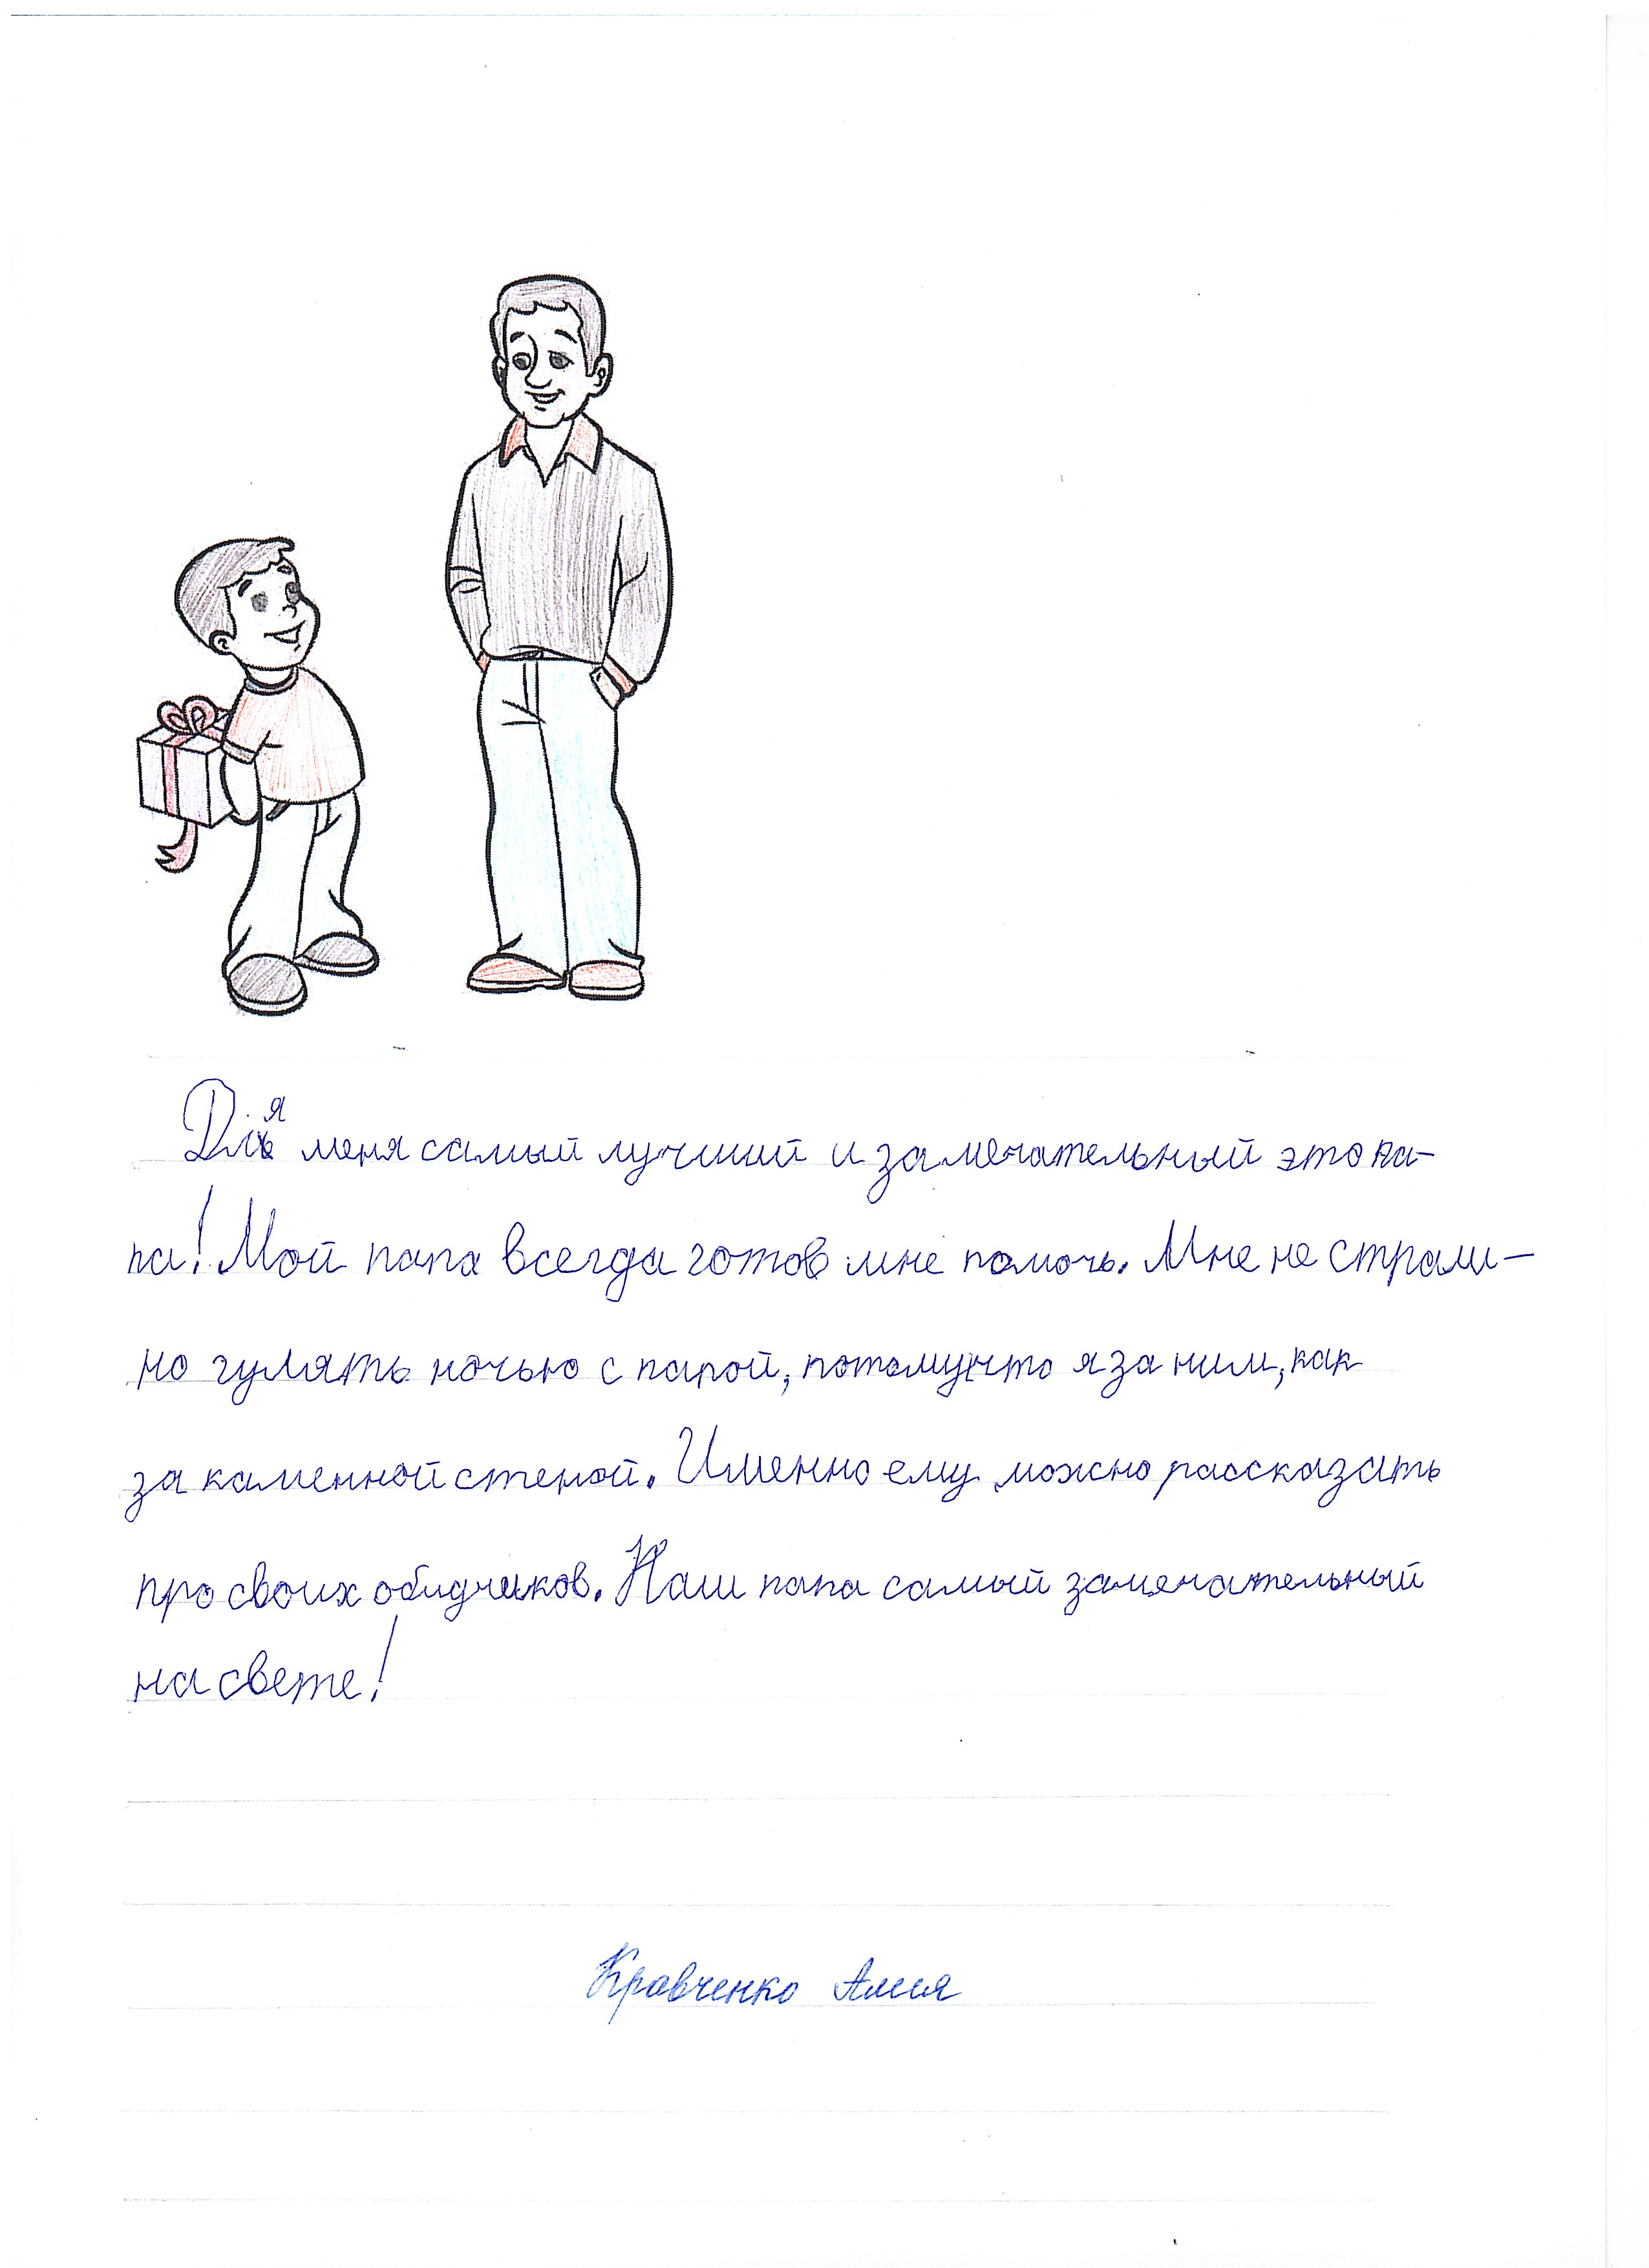 Для меня самый лучший и замечательный это па-
па! Мой папа всегда готов мне помочь. Мне не страш-
но гулять ночью с папой, потомучто я за ним, как
за каменной стеной. Именно ему можно рассказать
про своих обидчиков. Наш папа самый замечательный
на свете!
Кравченко Алия